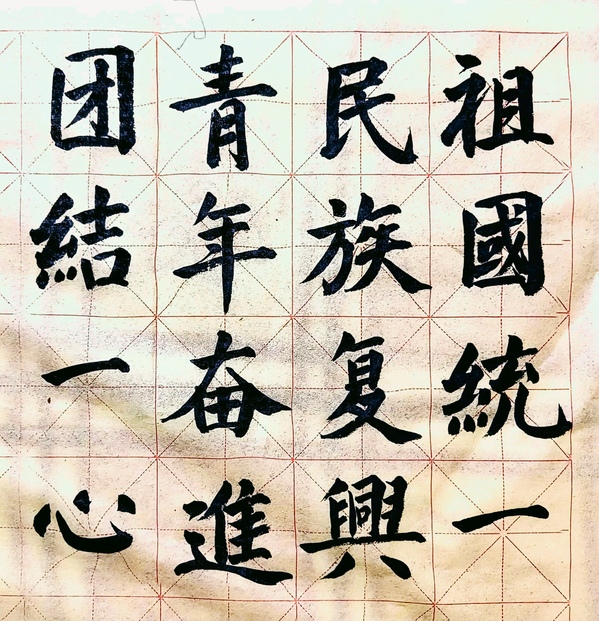 祖國統一
民族复興
青年奋進
团結一心